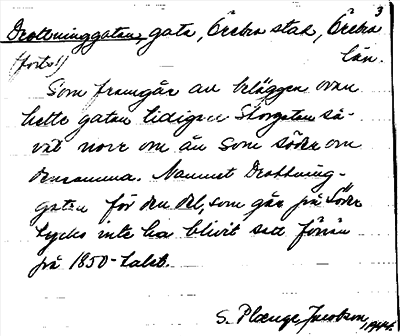 3
Drottninggatan, gata, Örebro stad, Örebro
(forts.!) län.
Som framgår av beläggen ovan
hette gatan tidigare Storgatan så-
väl norr om ån som söder om
densamma. Namnet Drottning-
gatan för den del, som går på Söder
tycks inte ha blivit satt förrän
på 1850-talet.
S. Plænge Jacobson, 1944.